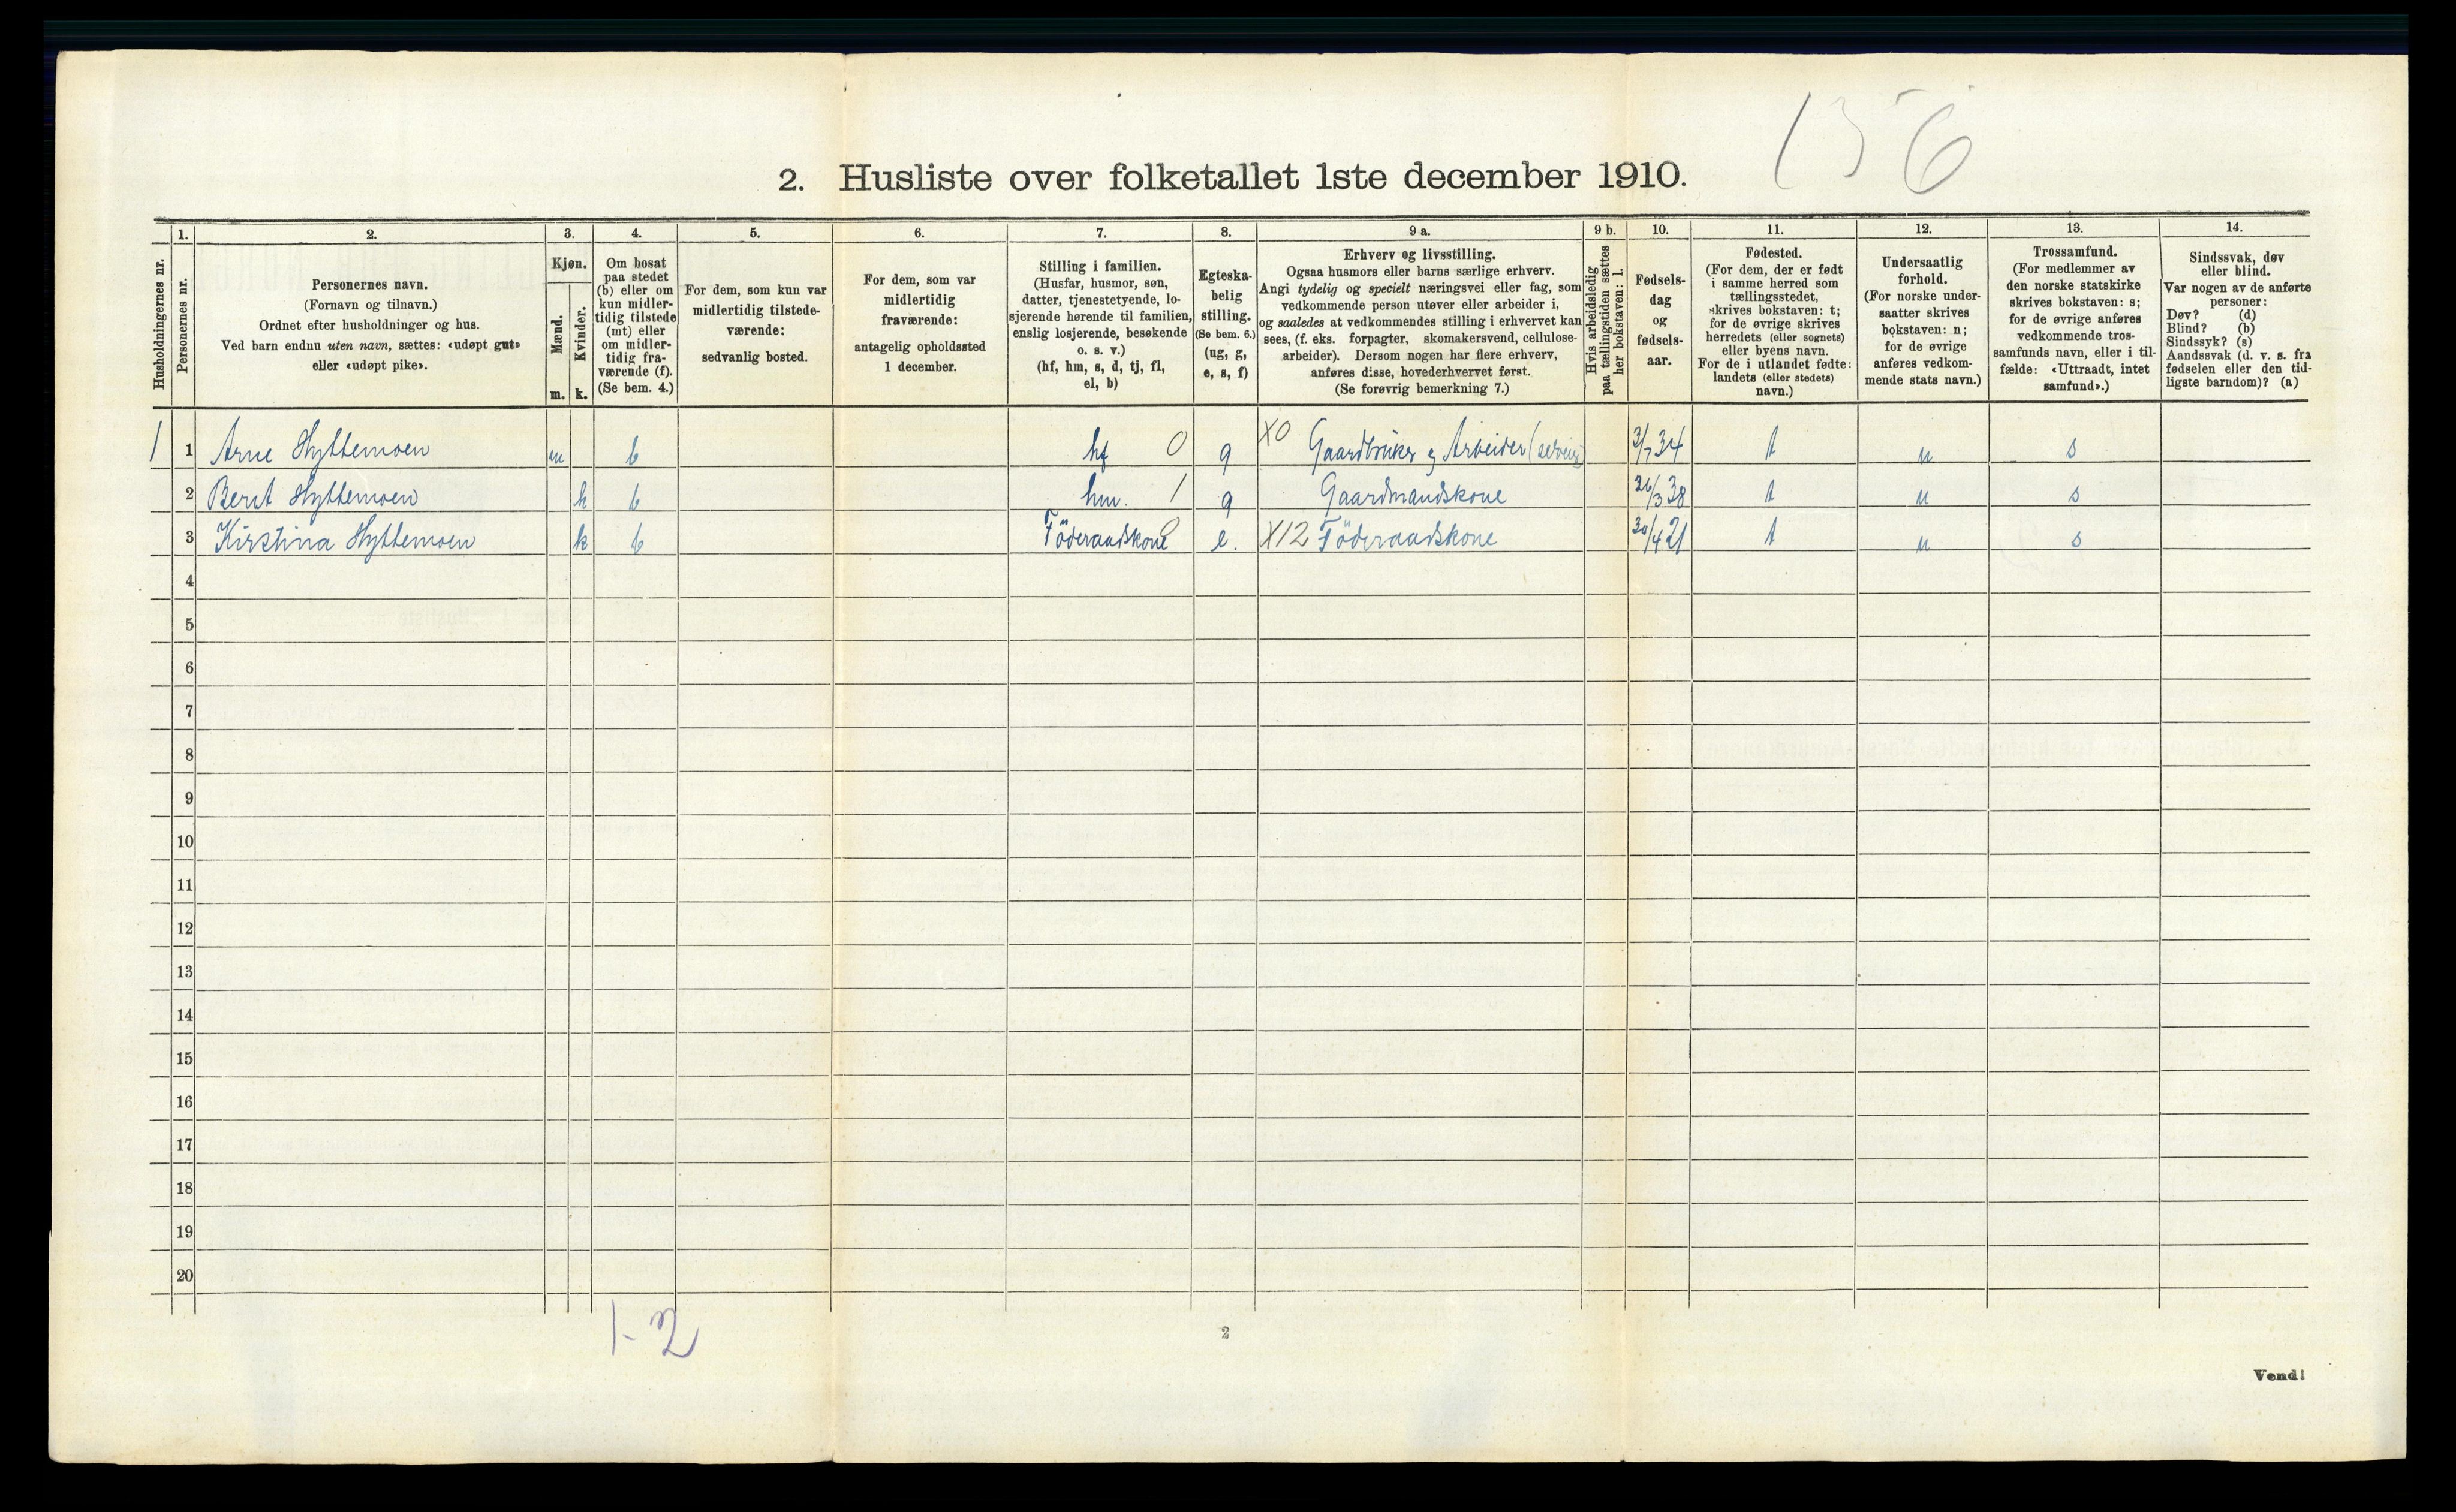 156
2. Husliste over folketallet 1ste december 1910.
1. 2. 3. 4. 5. 6. 7. 8. 9 a. 9 b. 10. 11. 12. 13. 14.
Husholdningernes nr.
Personernes nr.
Personernes navn.
(Fornavn og tilnavn.)
Ordnet efter husholdninger og hus.
Ved barn endnu uten navn, sættes: «udøpt gut»
eller «udøpt pike».
Kjøn.
Mænd.
Kvinder.
m. k.
Om bosat
paa stedet
(b) eller om
kun midler-
tidig tilstede
(mt) eller
om midler-
tidig fra-
værende (f).
(Se bem. 4.)
For dem, som kun var
midlertidig tilstede-
værende:
sedvanlig bosted.
For dem, som var
midlertidig
fraværende:
antagelig opholdssted
1 december.
Stilling i familien.
(Husfar, husmor, søn,
datter, tjenestetyende, lo-
sjerende hørende til familien,
enslig losjerende, besøkende
o. s. v.)
(hf, hm, s, d, tj, fl,
el, b)
Egteska-
belig
stilling.
(Se bem. 6.)
(ug, g,
e, s, f)
Erhverv og livsstilling.
Ogsaa husmors eller barns særlige erhverv.
Angi tydelig og specielt næringsvei eller fag, som
vedkommende person utøver eller arbeider i,
og saaledes at vedkommendes stilling i erhvervet kan
sees, (f. eks. forpagter, skomakersvend, cellulose-
arbeider). Dersom nogen har flere erhverv,
anføres disse, hovederhvervet først.
(Se forøvrig bemerkning 7.)
Hvis arbeidsledig
paa tællingstiden sættes
her bokstaven: l.
Fødsels-
dag
og
fødsels-
aar.
Fødested.
(For dem, der er født
i samme herred som
tællingsstedet,
skrives bokstaven: t;
for de øvrige skrives
herredets (eller sognets)
eller byens navn.
For de i utlandet fødte:
landets (eller stedets)
navn.)
Undersaatlig
forhold.
(For norske under-
saatter skrives
bokstaven: n;
for de øvrige
anføres vedkom-
mende stats navn.)
Trossamfund.
(For medlemmer av
den norske statskirke
skrives bokstaven: s;
for de øvrige anføres
vedkommende tros-
samfunds navn, eller i til-
fælde: «Uttraadt, intet
samfund».)
Sindssvak, døv
eller blind.
Var nogen av de anførte
personer:
Døv? (d)
Blind? (b)
Sindssyk? (s)
Aandssvak (d. v. s. fra
fødselen eller den tid-
ligste barndom)? (a)
1 1 Arne Hyttemoen m b hf 0 g X0 Gaardbruker & Arbeider 3/7 34 t n s
2 Berit Hyttemoen k b hm. 1 g Gaardmandskone 26/3 38 t n s
3 Kirstina Hyttemoen k b Föderaadskone e. X12 Föderaadskone 30/4 21 t n s
4
5
6
7
8
9
10
11
12
13
14
15
16
17
18
19
20
1-2
2
Vend!